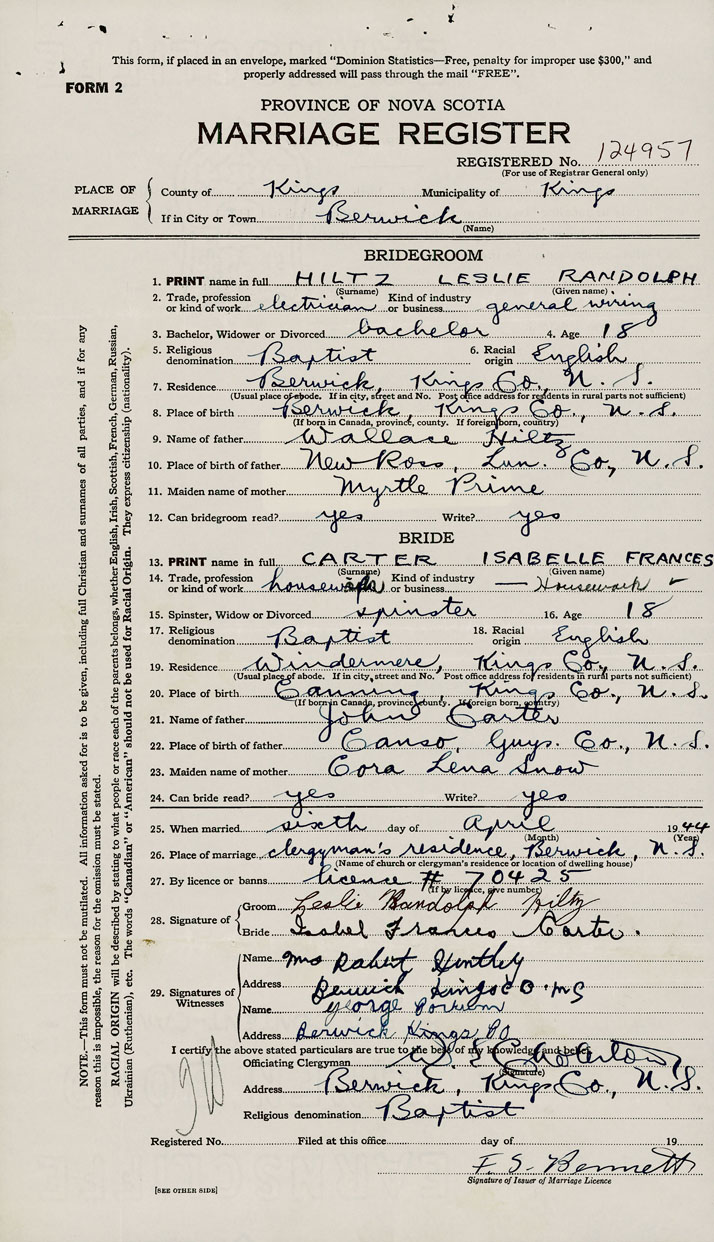 This form, if placed in an envelope, marked “Dominion Statistics—Free, penalty for improper use $300,” and
properly addressed will pass through the mail “FREE”.
FORM 2
PROVINCE OF NOVA SCOTIA
MARRIAGE REGISTER
REGISTERED No. 124957
(For use of Registrar General only)
PLACE OF MARRIAGE
County of Kings Municipality of Kings
If in City or Town Berwick
(Name)
BRIDEGROOM
1. PRINT name in full HILTZ LESLIE RANDOLPH
(Surname) (Given name)
2. Trade, profession or kind of work electrician Kind of industry or business general wiring
3. Bachelor, Widower or Divorced bachelor 4. Age 18
5. Religious denomination Baptist 6. Racial origin English
7. Residence Berwick, Kings Co., N. S.
(Usual place of abode. If in city, street and No. Post office address for residents in rural parts not sufficient)
8. Place of birth Berwick, Kings Co., N. S.
(If born in Canada, province, county. If foreign born, country)
9. Name of father Wallace Hiltz
10. Place of birth of father New Ross, Lun. Co, N. S.
11. Maiden name of mother Myrtle Prime
12. Can bridegroom read? yes Write? yes
BRIDE
13. PRINT name in full CARTER ISABELLE FRANCES
(Surname) (Given name)
14. Trade, profession or kind of work Kind of industry or business — Housework
15. Spinster, Widow or Divorced spinster 16. Age 18
17. Religious denomination Baptist 18. Racial origin English
19. Residence Windermere, Kings Co., N. S.
(Usual place of abode. If in city, street and No. Post office address for residents in rural parts not sufficient)
20. Place of birth Canning, Kings Co., N. S.
(If born in Canada, province, county. If foreign born, country)
21. Name of father John Carter
22. Place of birth of father Canso, Guys. Co., N. S.
23. Maiden name of mother Cora Lena Snow
24. Can bride read? yes Write? yes
25. When married sixth day of April 1944
(Month) (Year)
26. Place of marriage clergyman's residence, Berwick, N. S.
(Name of church or clergyman's residence or location of dwelling house)
27. By licence or banns licence # 70425
(If by licence, give number)
28. Signature of
Groom Leslie Randolph Hiltz
Bride Isabel Frances Carter.
29. Signatures of Witnesses
Name Mrs Robert Huntley
Address Berwick Kings CO NS
Name George
Address Berwick Kings Co
I certify the above stated particulars are true to the best of my knowledge and belief.
Officiating Clergyman
(Signature)
Address Berwick, Kings Co., N. S.
Religious denomination Baptist
Registered No. Filed at this office day of 19
F. S. Bennett
Signature of Issuer of Marriage Licence
[SEE OTHER SIDE]
NOTE.—This form must not be mutilated. All information asked for is to be given, including full Christian and surnames of all parties, and if for any
reason this is impossible, the reason for the omission must be stated.
RACIAL ORIGIN will be described by stating to what people or race each of the parents belongs, whether English, Irish, Scottish, French, German, Russian,
Ukrainian (Ruthenian), etc. The words “Canadian” or “American” should not be used for Racial Origin. They express citizenship (nationality).